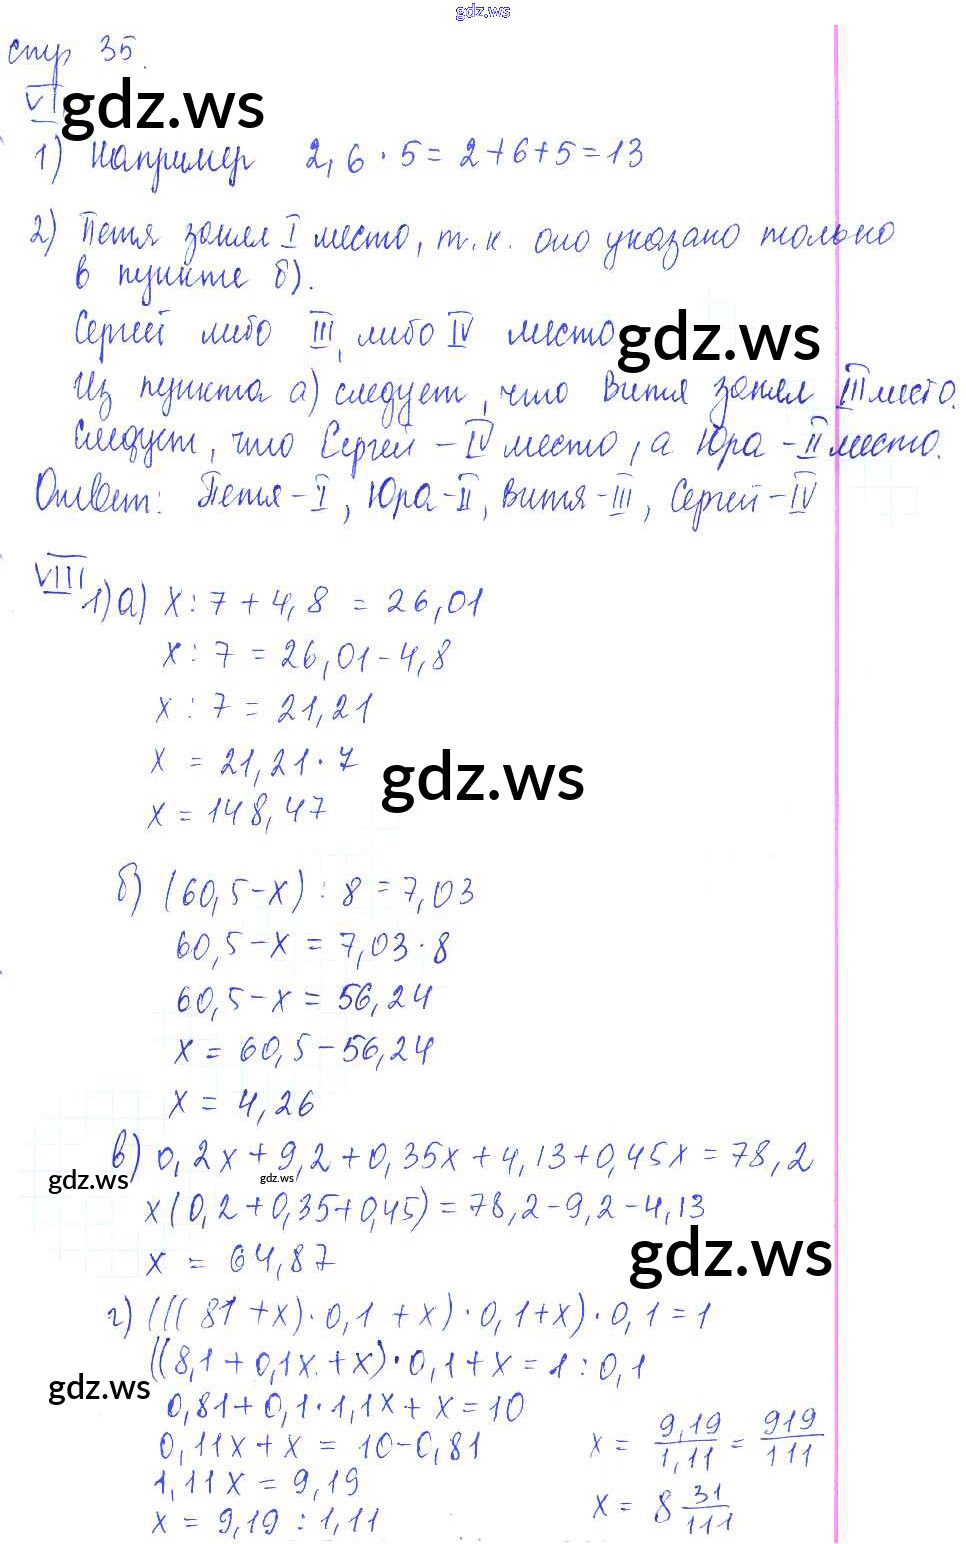 gdz.ws
стр 35.
VII
gdz.ws
1) Например 2,6 · 5 = 2+6+5 = 13
2) Петя занял I место, т.к. оно указано только
в пункте б).
Сергей либо III, либо IV место
gdz.ws
Из пункта а) следует, что Витя занял III место.
Следует, что Сергей – IV место, а Юра – II место.
Ответ: Петя – I, Юра – II, Витя – III, Сергей – IV
VIII
1) а) x : 7 + 4,8 = 26,01
x : 7 = 26,01 – 4,8
x : 7 = 21,21
x = 21,21 · 7
gdz.ws
x = 148,47
б) (60,5 – x) : 8 = 7,03
60,5 – x = 7,03 · 8
60,5 – x = 56,24
x = 60,5 – 56,24
x = 4,26
в) 0,2x + 9,2 + 0,35x + 4,13 + 0,45x = 78,2
gdz.ws gdz.ws
x (0,2 + 0,35 + 0,45) = 78,2 – 9,2 – 4,13
gdz.ws
x = 64,87
г) (((81 + x) · 0,1 + x) · 0,1 + x) · 0,1 = 1
((8,1 + 0,1x + x) · 0,1 + x = 1 : 0,1
gdz.ws
0,81 + 0,1 · 1,1x + x = 10
0,11x + x = 10 – 0,81
1,11x = 9,19
x = 9,19 : 1,11
x = 9,19/1,11 = 919/111
x = 8 31/111